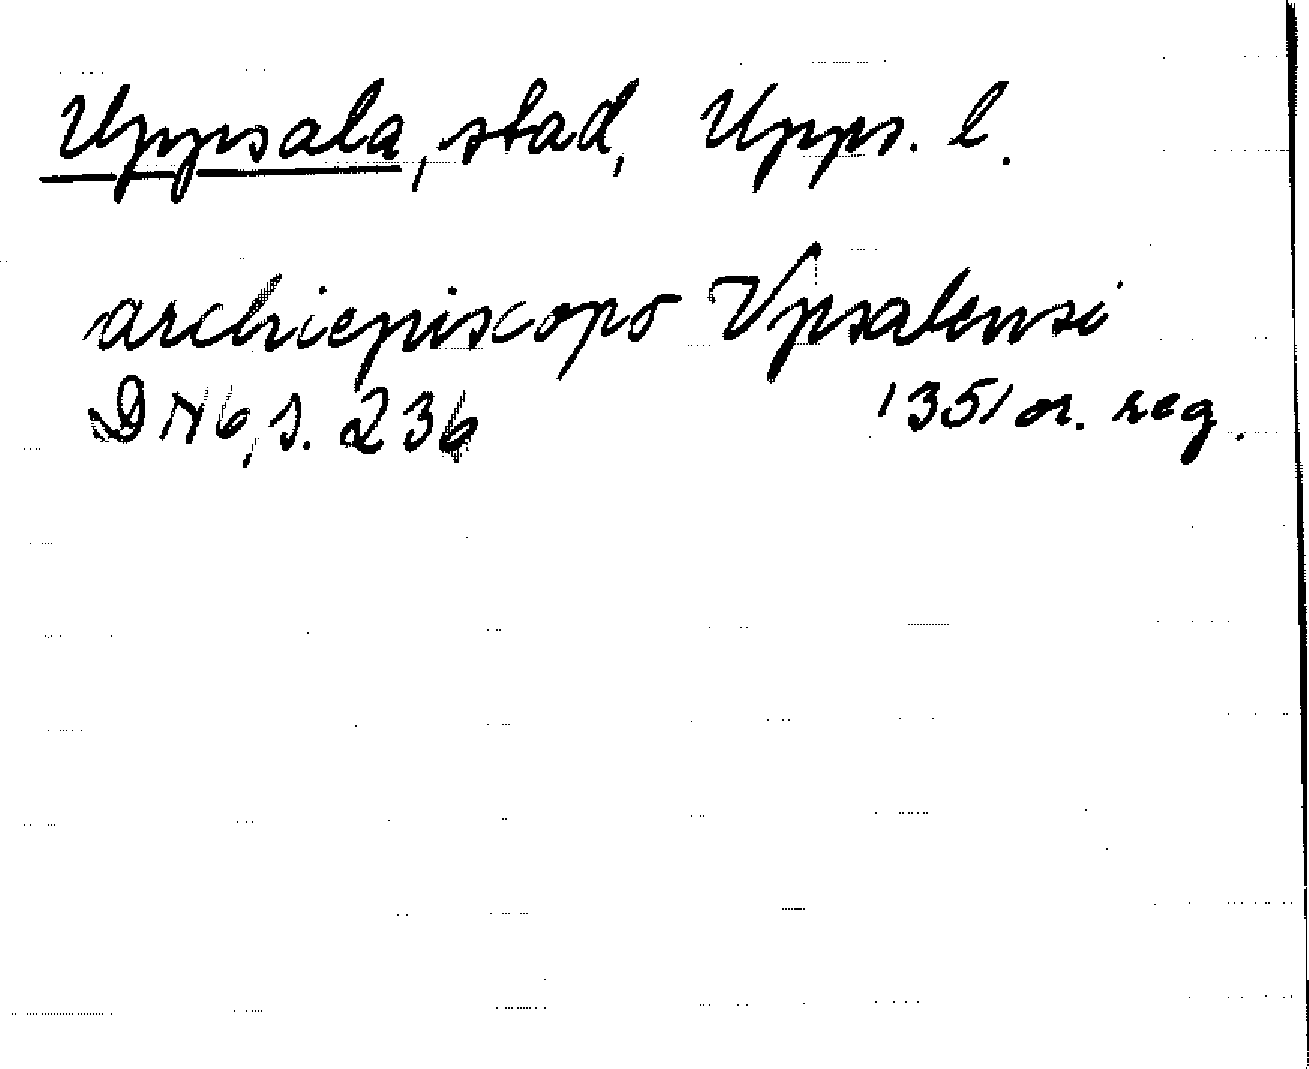 Uppsala, stad, Upps. l.
archiepiscopo Vpsalensi
DN 6, s. 236 1351 or. reg.